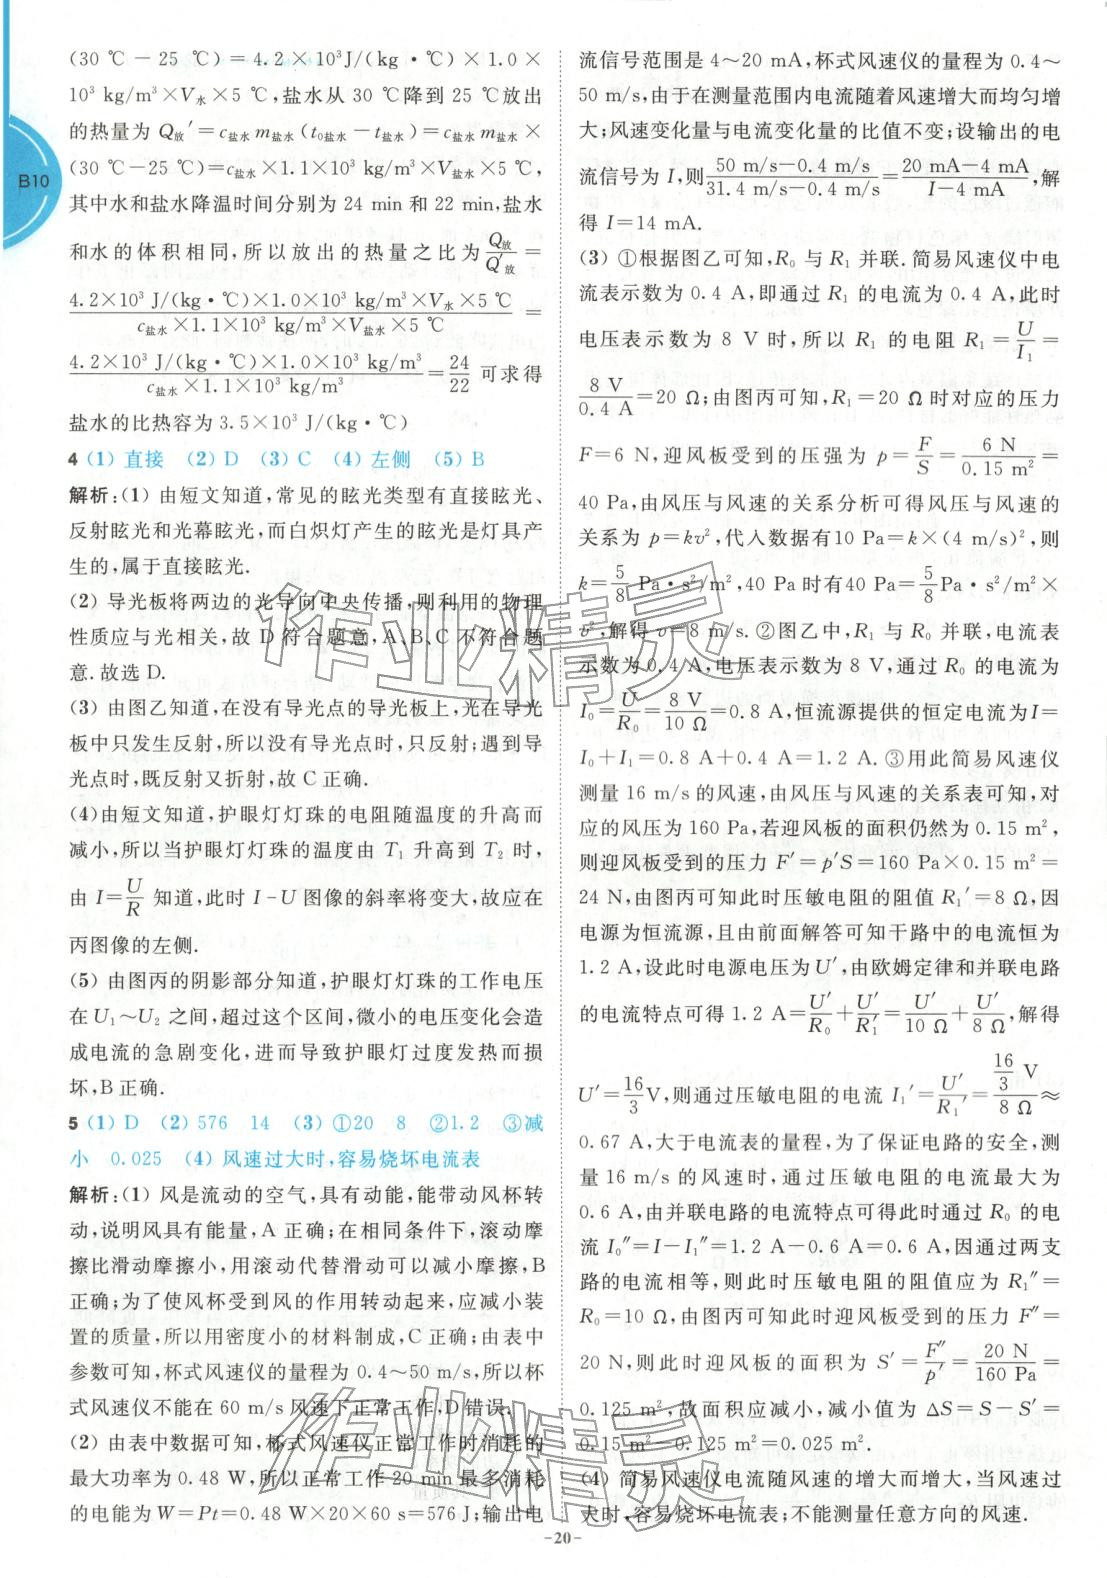 B10
(30 ℃－25 ℃)＝4.2×10³J/(kg·℃)×1.0×
10³ kg/m³×V水×5 ℃,盐水从 30 ℃降到 25 ℃放出
的热量为 Q放′＝c盐水 m盐水 (t0盐水－t盐水)＝c盐水 m盐水×
(30 ℃－25 ℃)＝c盐水×1.1×10³ kg/m³×V盐水×5 ℃,
其中水和盐水降温时间分别为 24 min 和 22 min,盐水
和水的体积相同,所以放出的热量之比为 Q放/Q′放＝
4.2×10³ J/(kg·℃)×1.0×10³ kg/m³×V水×5 ℃/c盐水×1.1×10³ kg/m³×V盐水×5 ℃＝
4.2×10³ J/(kg·℃)×1.0×10³ kg/m³/c盐水×1.1×10³ kg/m³＝24/22 可求得
盐水的比热容为 3.5×10³ J/(kg·℃)
4 (1) 直接 (2) D (3) C (4) 左侧 (5) B
解析:(1) 由短文知道,常见的眩光类型有直接眩光、
反射眩光和光幕眩光,而白炽灯产生的眩光是灯具产
生的,属于直接眩光.
(2) 导光板将两边的光导向中央传播,则利用的物理
性质应与光相关,故 D 符合题意,A、B、C 不符合题
意.故选 D.
(3) 由图乙知道,在没有导光点的导光板上,光在导光
板中只发生反射,所以没有导光点时,只反射;遇到导
光点时,既反射又折射,故 C 正确.
(4)由短文知道,护眼灯灯珠的电阻随温度的升高而
减小,所以当护眼灯灯珠的温度由 T₁ 升高到 T₂ 时,
由 I＝U/R 知道,此时 I-U 图像的斜率将变大,故应在
丙图像的左侧.
(5) 由图丙的阴影部分知道,护眼灯灯珠的工作电压
在 U₁～U₂ 之间,超过这个区间,微小的电压变化会造
成电流的急剧变化,进而导致护眼灯过度发热而损
坏,B 正确.
5 (1) D (2) 576 14 (3) ①20 8 ②1.2 ③减
小 0.025 (4) 风速过大时,容易烧坏电流表
解析:(1) 风是流动的空气,具有动能,能带动风杯转
动,说明风具有能量,A 正确;在相同条件下,滚动摩
擦比滑动摩擦小,用滚动代替滑动可以减小摩擦,B
正确;为了使风杯受到风的作用转动起来,应减小装
置的质量,所以用密度小的材料制成,C 正确;由表中
参数可知,杯式风速仪的量程为 0.4～50 m/s,所以杯
式风速仪不能在 60 m/s 风速下正常工作,D 错误.
(2) 由表中数据可知,杯式风速仪正常工作时消耗的
最大功率为 0.48 W,所以正常工作 20 min 最多消耗
的电能为 W＝Pt＝0.48 W×20×60 s＝576 J;输出电
流信号范围是 4～20 mA,杯式风速仪的量程为 0.4～
50 m/s,由于在测量范围内电流随着风速增大而均匀增
大;风速变化量与电流变化量的比值不变;设输出的电
流信号为 I,则 50 m/s－0.4 m/s/31.4 m/s－0.4 m/s＝20 mA－4 mA/I－4 mA,解
得 I＝14 mA.
(3) ①根据图乙可知,R₀ 与 R₁ 并联.简易风速仪中电
流表示数为 0.4 A,即通过 R₁ 的电流为 0.4 A,此时
电压表示数为 8 V 时,所以 R₁ 的电阻 R₁＝U/I₁＝
8 V/0.4 A＝20 Ω;由图丙可知,R₁＝20 Ω 时对应的压力
F＝6 N,迎风板受到的压强为 p＝F/S＝6 N/0.15 m²＝
40 Pa,由风压与风速的关系分析可得风压与风速的
关系为 p＝kv²,代入数据有10 Pa＝k×(4 m/s)²,则
k＝5/8 Pa·s²/m²,40 Pa 时有40 Pa＝5/8 Pa·s²/m²×
v²,解得 v＝8 m/s.②图乙中,R₁ 与 R₀ 并联,电流表
示数为0.4 A,电压表示数为 8 V,通过 R₀ 的电流为
I₀＝U/R₀＝8 V/10 Ω＝0.8 A,恒流源提供的恒定电流为I＝
I₀＋I₁＝0.8 A＋0.4 A＝1.2 A.③用此简易风速仪
测量 16 m/s 的风速,由风压与风速的关系表可知,对
应的风压为 160 Pa,若迎风板的面积仍然为 0.15 m²,
则迎风板受到的压力 F′＝p′S＝160 Pa×0.15 m²＝
24 N,由图丙可知此时压敏电阻的阻值 R₁′＝8 Ω,因
电源为恒流源,且由前面解答可知干路中的电流恒为
1.2 A,设此时电源电压为 U′,由欧姆定律和并联电路
的电流特点可得 1.2 A＝U′/R₀＋U′/R₁′＝U′/10 Ω＋U′/8 Ω,解得
U′＝16/3 V,则通过压敏电阻的电流 I₁′＝U′/R₁′＝16/3 V/8 Ω≈
0.67 A,大于电流表的量程,为了保证电路的安全,测
量 16 m/s 的风速时,通过压敏电阻的电流最大为
0.6 A,由并联电路的电流特点可得此时通过 R₀ 的电
流 I₀″＝I－I₁″＝1.2 A－0.6 A＝0.6 A,因通过两支
路的电流相等,则此时压敏电阻的阻值应为 R₁″＝
R₀＝10 Ω,由图丙可知此时迎风板受到的压力 F″＝
20 N,则此时迎风板的面积为 S′＝F″/p′＝20 N/160 Pa＝
0.125 m²,故面积应减小,减小量为 ΔS＝S－S′＝
0.15 m²－0.125 m²＝0.025 m².
(4) 简易风速仪电流随风速的增大而增大,当风速过
大时,容易烧坏电流表;不能测量任意方向的风速.
-20-
作业精灵
作业精灵